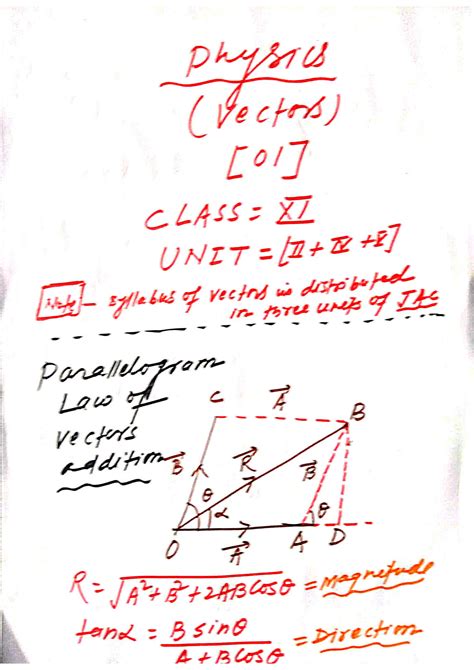 Physics
(Vectors)
[01]
CLASS = XI
UNIT = [II + IV + V]
Note - Syllabus of vectors is distributed
in three units of JAC
Parallelogram
Law of
vectors
addition
C A B
B R B
θ α θ
O A A D
R = √A²+B²+2ABCosθ = Magnitude
tanα = B sinθ / A+BCosθ = Direction